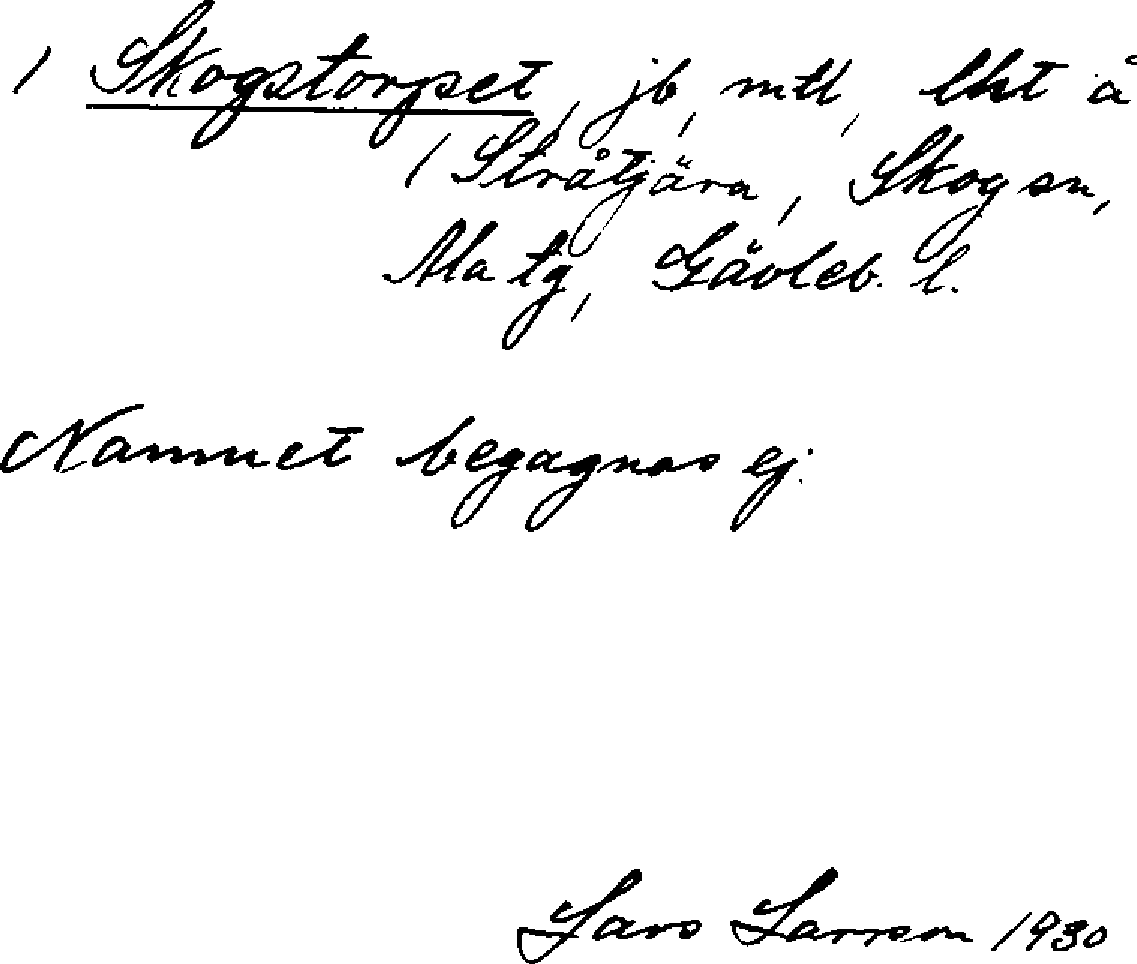 / Skogstorpet, jb, mtl, lht å
/ Stråtjära, Skog sn,
Ala tg, Gävleb. l.
Namnet begagnas ej.
Lars Larsson 1930